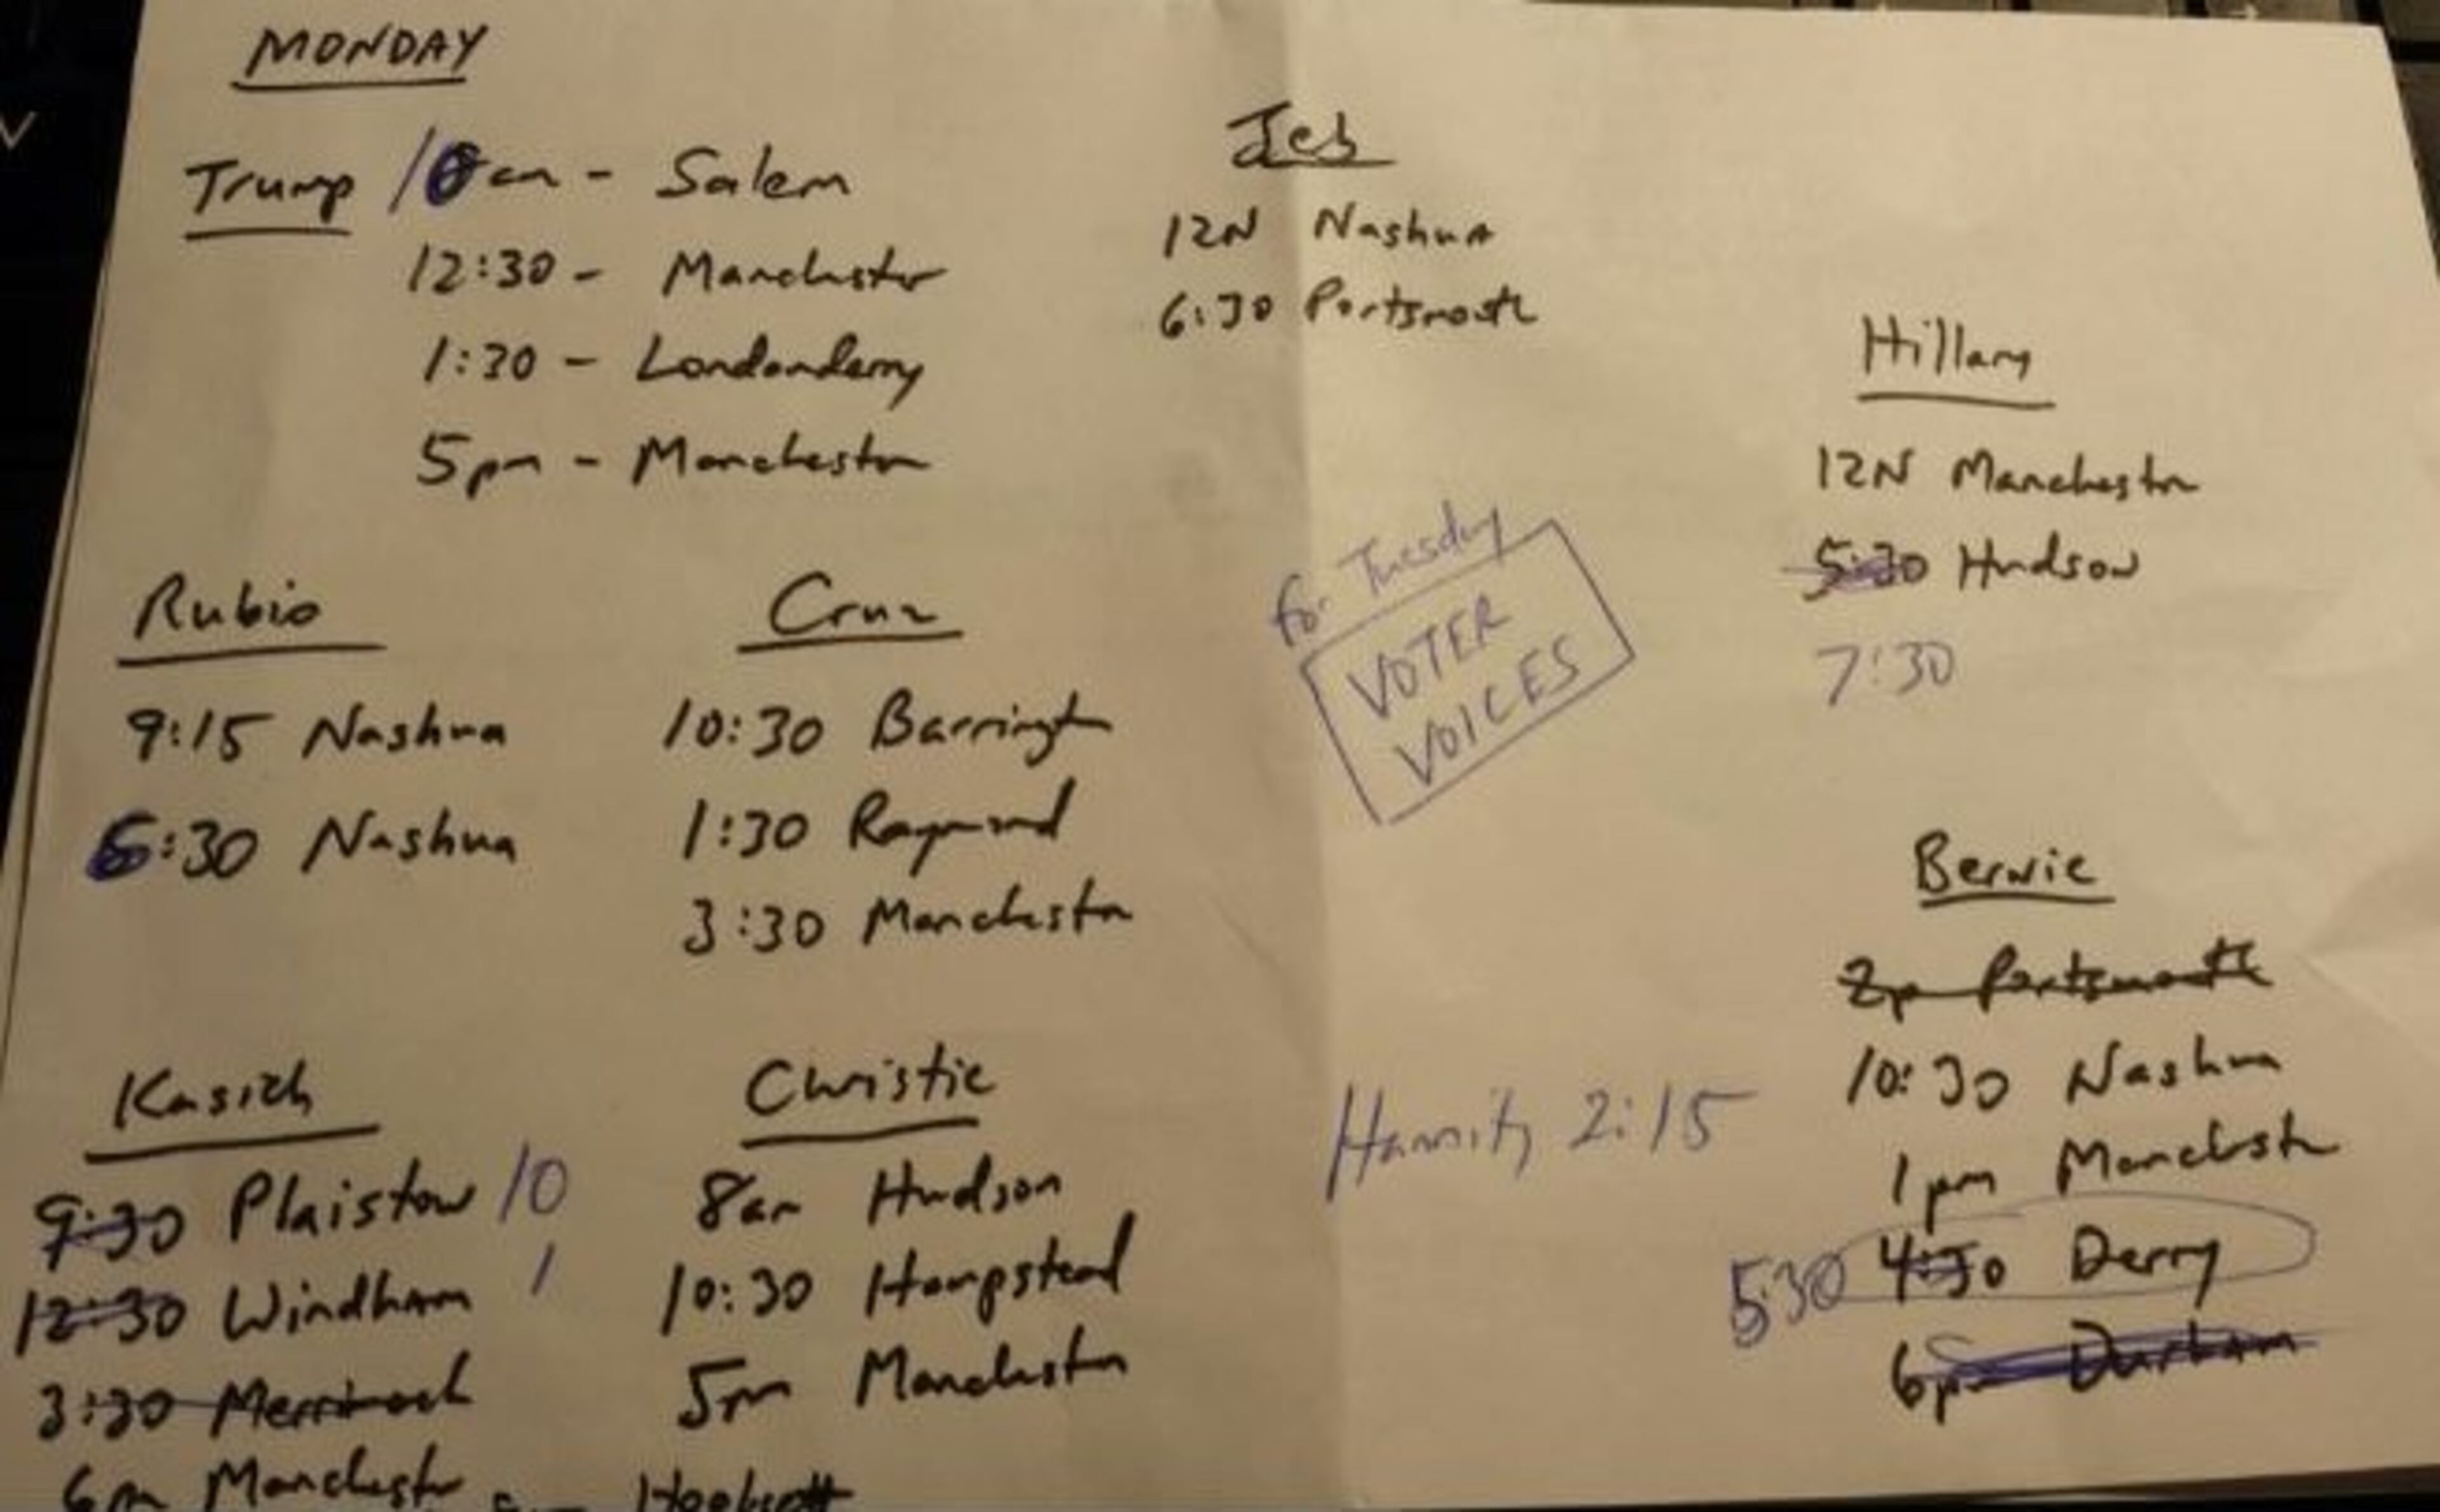 MONDAY
Trump 10am - Salem
12:30 - Manchester
1:30 - Londonderry
5pm - Manchester
Jeb
12N Nashua
6:30 Portsmouth
Hillary
12N Manchester
5:30 Hudson
7:30
Rubio
9:15 Nashua
:30 Nashua
Cruz
10:30 Barrington
1:30 Raymond
3:30 Manchester
for Tuesday
VOTER
VOICES
Bernie
2p Portsmouth
10:30 Nashua
1pm Manchester
530 4:30 Derry
6pm Durham
Hannity 2:15
Kasich
9:30 Plaistow 10
12:30 Windham 1
3:30 Merrimack
6pm Manchester
Christie
8am Hudson
10:30 Hampstead
5pm Manchester
Hooksett